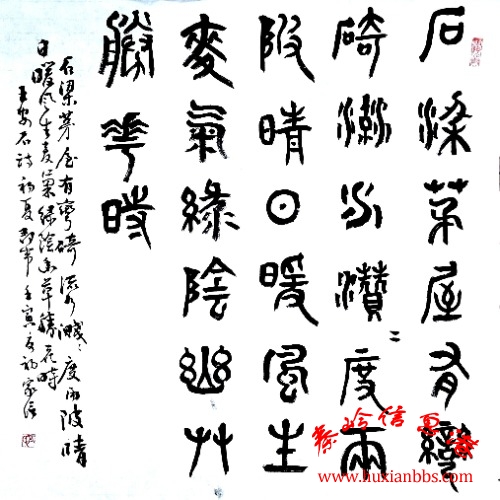 石梁茅屋有彎
碕流水濺〻度兩
陂晴日暖風生
麥氣綠陰幽艸
勝華時
石梁茅屋有彎碕流水濺〻度兩陂晴
日暖風生麥氣綠陰幽草勝花時
王安石詩初夏即事壬寅夏初家信
www.huxianbbs.com